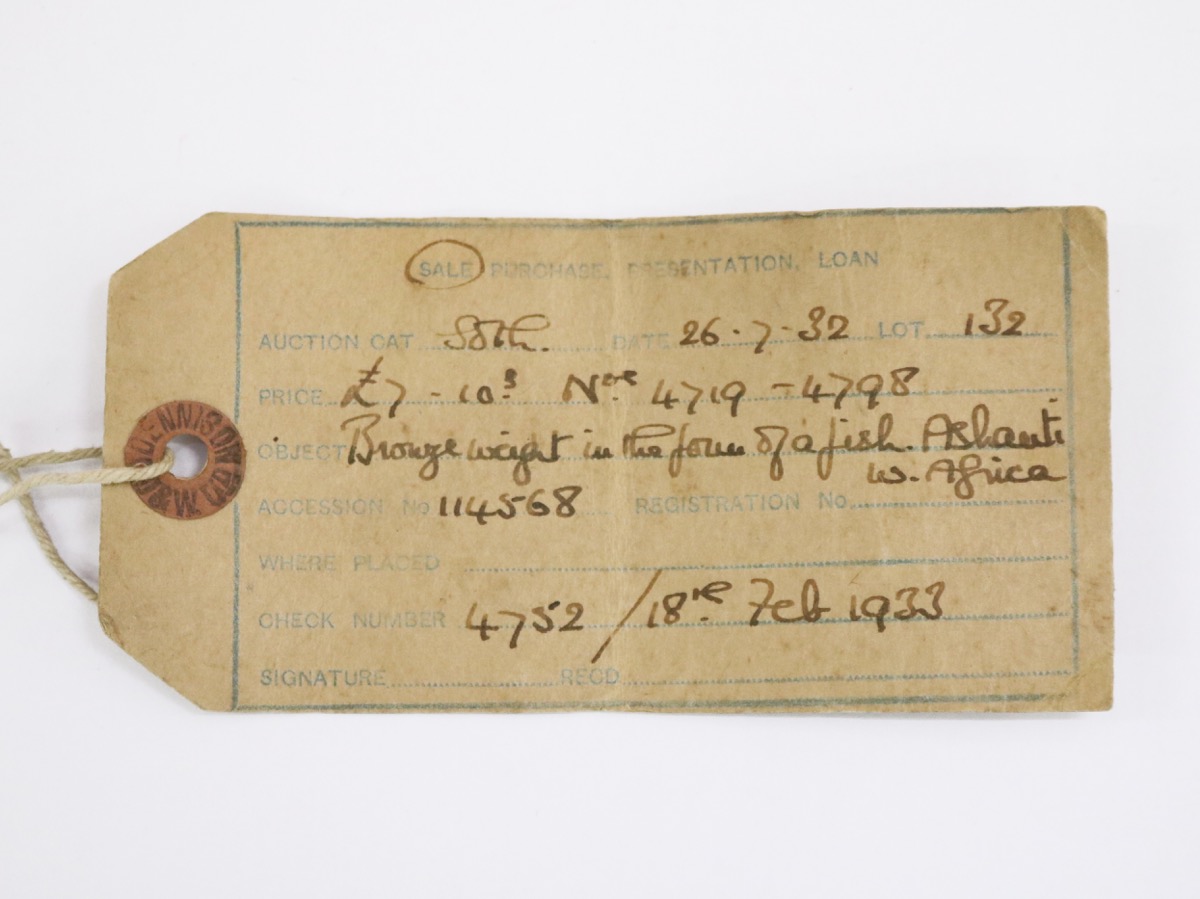 SALE PURCHASE. PRESENTATION, LOAN
AUCTION CAT Soth. DATE 26-7-32 LOT 132
PRICE £7-10s Nos 4719-4798
OBJECT Bronze weight in the form of a fish. Ashanti
W. Africa
ACCESSION No 114568 REGISTRATION No
WHERE PLACED
CHECK NUMBER 4752 / 18re Feb 1933
SIGNATURE RECD
DENNISON